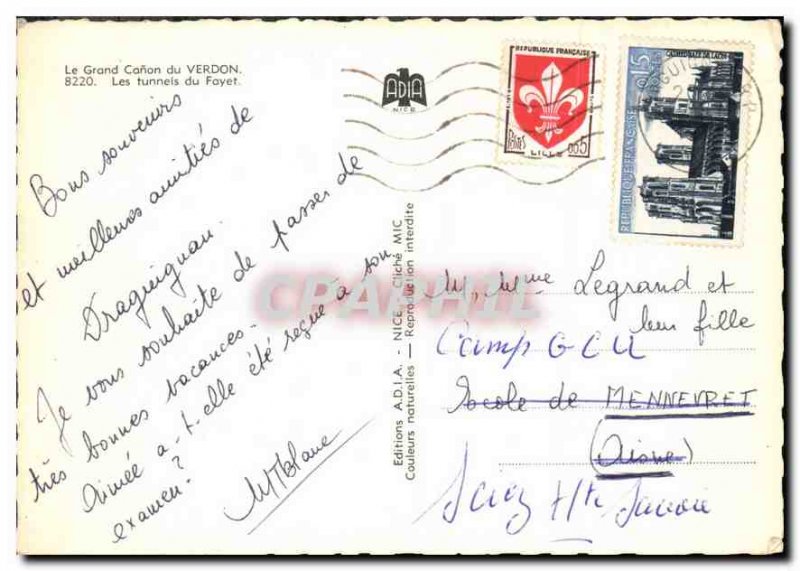 Le Grand Cañon du VERDON.
8220. Les tunnels du Fayet.
ADIA
NICE
RÉPUBLIQUE FRANÇAISE
POSTES
0,05
LILLE
CATHÉDRALE DE LAON
0,15
RÉPUBLIQUE FRANÇAISE
Bons souvenirs
et meilleures amitiés de
Draguignan.
Je vous souhaite de passer de
très bonnes vacances.
Aimée a-t-elle été reçue à son
examen?
Editions A.D.I.A. - NICE - Cliché MIC
Couleurs naturelles — Reproduction interdite
CPAPHIL
M, Mme Legrand et
leur fille
Camp GCU
Ecole de MENNEVRET
(Aisne)
Sciez Hte Savoie